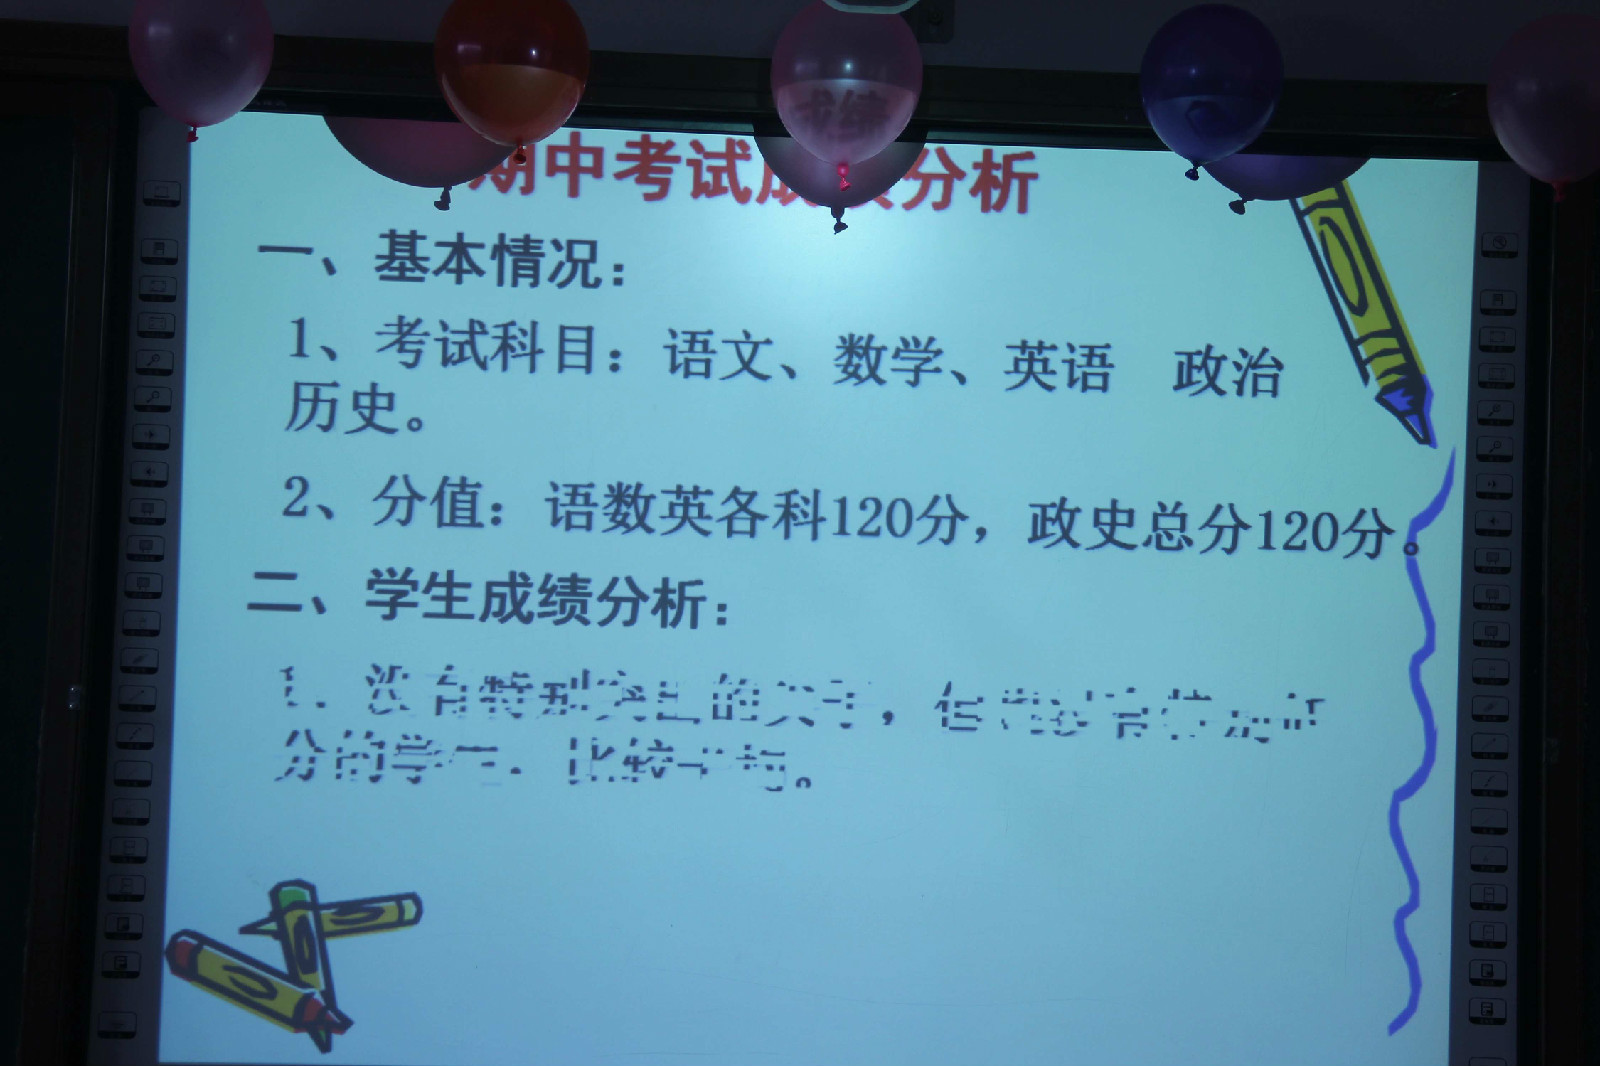 期中考试成绩分析
一、基本情况：
1、考试科目：语文、数学、英语 政治
历史。
2、分值：语数英各科120分，政史总分120分。
二、学生成绩分析：
1、没有特别突出的尖子，但也没有特别低
分的学生，比较平均。